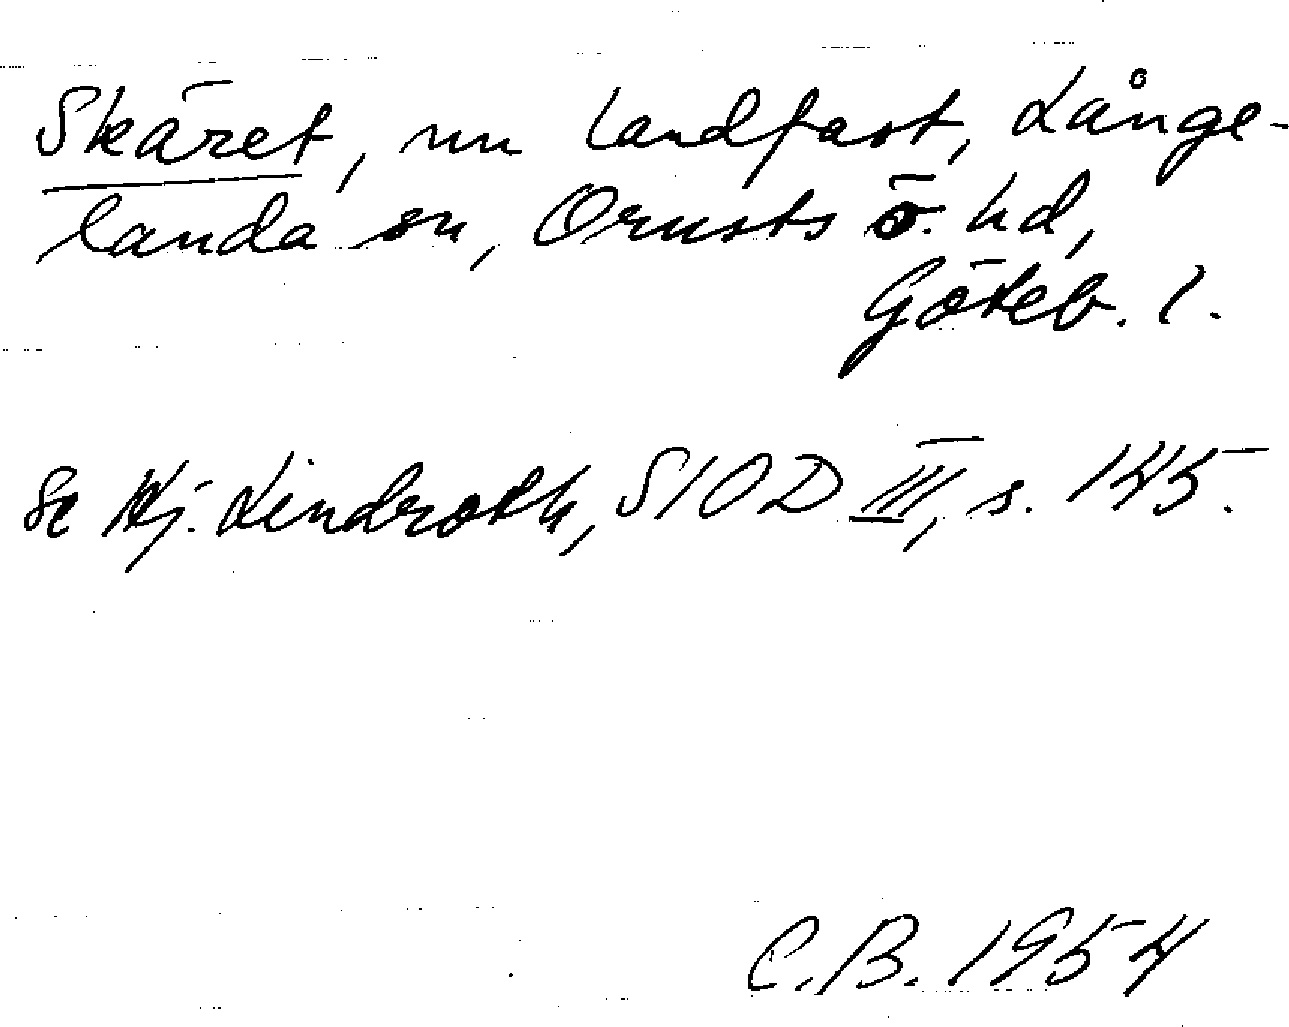 Skäret, nu landfast, Långe-
landa sn, Orusts ö. hd,
Göteb. l.
Se Hj. Lindroth, SIOD III, s. 145.
C.B. 1954